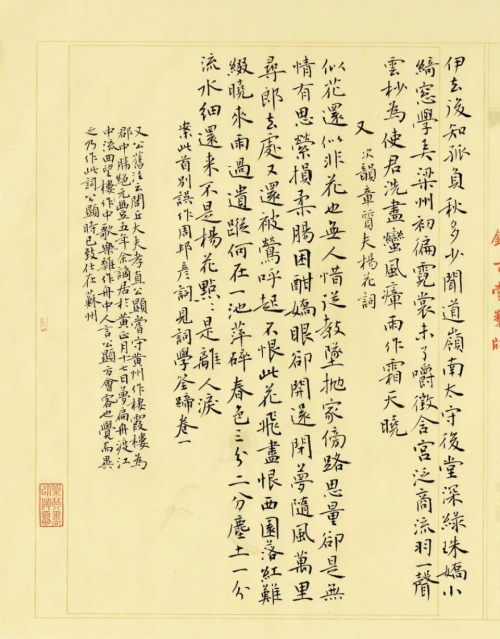 伊去後知孤負秋多少聞道嶺南太守後堂深綠珠嬌小
綺窓學弄梁州初徧霓裳未了嚼徵含宮泛商流羽一聲
雲杪為使君洗盡蠻風瘴雨作霜天曉
又 次韻章質夫楊花詞
似花還似非花也無人惜從教墜抛家傍路思量卻是無
情有思縈損柔腸困酣嬌眼卻開還閉夢隨風萬里
尋郎去處又還被鶯呼起不恨此花飛盡恨西園落紅難
綴曉來雨過遺蹤何在一池萍碎春色三分二分塵土一分
流水細還来不是楊花點〻是離人淚
案此首別誤作周邦彥詞見詞學筌蹄卷一
又公舊注云閭丘大夫孝直公顯嘗守黃州作棲霞樓為
郡中勝絕元豐五年余謫居於黃正月十七日夢扁舟渡江
中流回望樓作中歌樂雜作舟中人言公顯方會客也覺而異
之乃作此詞公顯時已致仕在蘇州